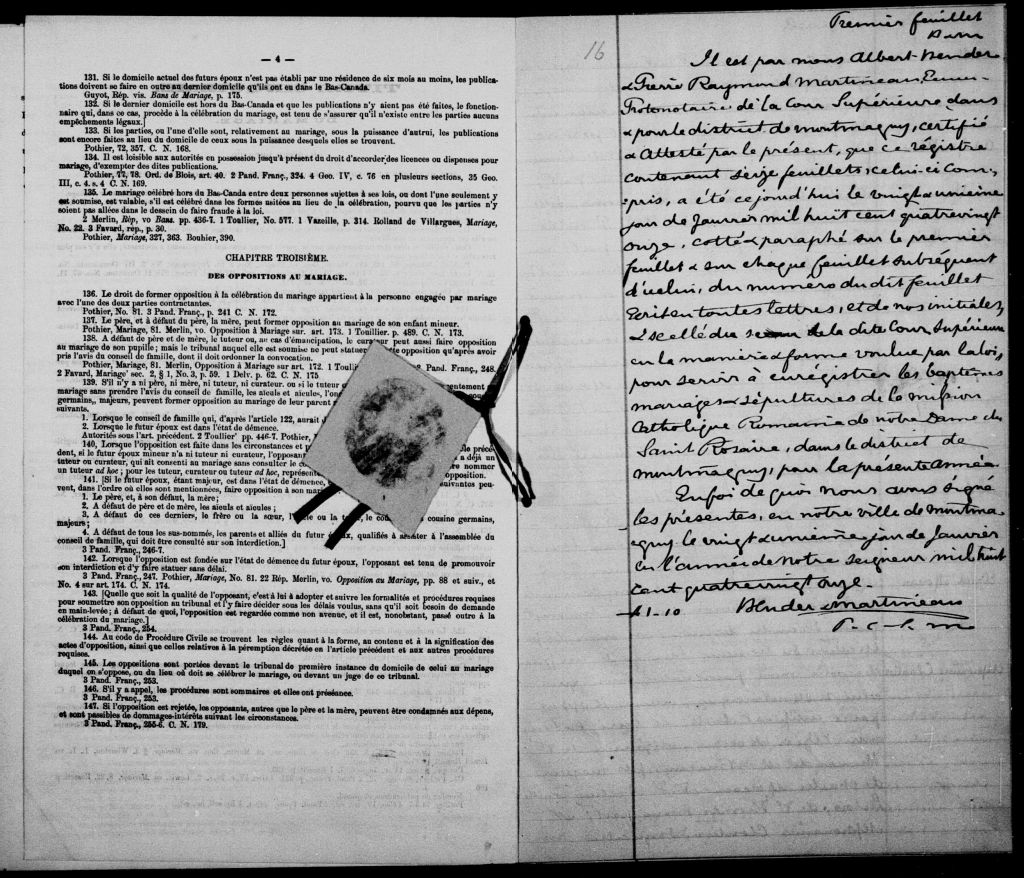 — 4 —
131. Si le domicile actuel des futurs époux n'est pas établi par une résidence de six mois au moins, les publica-
tions doivent se faire en outre au dernier domicile qu'ils ont eu dans le Bas-Canada.
Guyot, Rép. vis. Bans de Mariage, p. 175.
132. Si le dernier domicile est hors du Bas-Canada et que les publications n'y aient pas été faites, le fonction-
naire qui, dans ce cas, procède à la célébration du mariage, est tenu de s'assurer qu'il n'existe entre les parties aucuns
empêchements légaux.]
133. Si les parties, ou l'une d'elle sont, relativement au mariage, sous la puissance d'autrui, les publications
sont encore faites au lieu du domicile de ceux sous la puissance desquels elles se trouvent.
Pothier, 72, 357. C. N. 168.
134. Il est loisible aux autorités en possession jusqu'à présent du droit d'accorder des licences ou dispenses pour
mariage, d'exempter des dites publications.
Pothier, 77, 78. Ord. de Blois, art. 40. 2 Pand. Franç., 324. 4 Geo. IV, c. 76 en plusieurs sections, 35 Geo.
III, c. 4. s. 4 C. N. 169.
135. Le mariage célébré hors du Bas-Canda entre deux personnes sujettes à ses lois, ou dont l'une seulement y
est soumise, est valable, s'il est célébré dans les formes usitées au lieu de la célébration, pourvu que les parties n'y
soient pas allées dans le dessein de faire fraude à la loi.
2 Merlin, Rép, vo Bans. pp. 436-7. 1 Toullier, No. 577. 1 Vazeille, p. 314. Rolland de Villargues, Mariage,
No. 22. 3 Favard, rép., p. 30.
Pothier, Mariage, 327, 363. Bouhier, 390.
CHAPITRE TROISIÈME.
DES OPPOSITIONS AU MARIAGE.
136. Le droit de former opposition à la célébration du mariage appartient à la personne engagée par mariage
avec l'une des deux parties contractantes.
Pothier, No. 81. 3 Pand. Franç., p. 241 C. N. 172.
137. Le père, et à défaut du père, la mère, peut former opposition au mariage de son enfant mineur.
Pothier, Mariage, 81. Merlin, vo. Opposition à Mariage sur. art. 173. 1 Touillier. p. 489. C. N. 173.
138. A défaut de père et de mère, le tuteur ou, au cas d'émancipation, le curateur peut aussi faire opposition
au mariage de son pupille; mais le tribunal auquel elle est soumise ne peut statuer opposition qu'après avoir
pris l'avis du conseil de famille, dont il doit ordonner la convocation.
Pothier, Mariage, 81. Merlin, Opposition à Mariage sur art. 172. 1 Toulli Pand. Franç., 248.
2 Favard, Mariage' sec. 2, § 1, No. 3, p. 59. 1 Delv. p. 62. C. N. 175
139. S'il n'y a ni père, ni mère, ni tuteur, ni curateur. ou si le tuteur
mariage sans prendre l'avis du conseil de famille, les aïeuls et aïeules, l'on
germains,, majeurs, peuvent former opposition au mariage de leur parent
suivants.
1. Lorsque le conseil de famille qui, d'après l'article 122, aurait
2. Lorsque le futur époux est dans l'état de démence.
Autorités sous l'art. précédent. 2 Toullier' pp. 446-7. Pothier,
140, Lorsque l'opposition est faite dans les circonstances et p
dent, si le futur époux mineur n'a ni tuteur ni curateur, l'opposan
tuteur ou curateur, qui ait consenti au mariage sans consulter le c nommer
un tuteur ad hoc; pour les tuteur, curateur ou tuteur ad hoc, représente opposition.
141. [Si le futur époux, étant majeur, est dans l'état de démence, uivantes peu-
vent, dans l'ordre où elles sont mentionnées, faire opposition à son mar
1. Le père, et, à son défaut, la mère;
2. A défaut de père et de mère, les aïeuls et aïeules;
3. A défaut de ces derniers, le frère ou la sœur, l' ou la cousine germains,
majeurs;
4. A défaut de tous les sus-nommés, les parents et alliés du futur qualifiés à assister à l'assemblée du
conseil de famille, qui doit être consulté sur son interdiction.]
3 Pand. Franç., 246-7.
142. Lorsque l'opposition est fondée sur l'état de démence du futur époux, l'opposant est tenu de promouvoir
son interdiction et d'y faire statuer sans délai.
3 Pand. Franç., 247. Pothier, Mariage, No. 81. 22 Rép. Merlin, vo. Opposition au Mariage, pp. 88 et suiv., et
No. 4 sur art. 174. C. N. 174.
143. [Quelle que soit la qualité de l'opposant, c'est à lui à adopter et suivre les formalités et procédures requises
pour soumettre son opposition au tribunal et l'y faire décider sous les délais voulus, sans qu'il soit besoin de demande
en main-levée; à défaut de quoi, l'opposition est regardée comme non avenue, et il est, nonobstant, passé outre à la
célébration du mariage.]
3 Pand. Franç., 254.
144. Au code de Procédure Civile se trouvent les règles quant à la forme, au contenu et à la signification des
actes d'opposition, ainsi que celles relatives à la péremption décrétée en l'article précédent et aux autres procédures
requises.
145. Les oppositions sont portées devant le tribunal de première instance du domicile de celui au mariage
duquel on s'oppose, ou du lieu où doit se célébrer le mariage, ou devant un juge de ce tribunal.
3 Pand. Franç., 253.
146. S'il y a appel, les procédures sont sommaires et elles ont préséance.
3 Pand. Franç., 253.
147. Si l'opposition est rejetée, les opposants, autres que le père et la mère, peuvent être condamnés aux dépens,
et sont passibles de dommages-intérêts suivant les circonstances.
3 Pand. Franç., 255-6. C. N. 179.
16
Premier feuillet
B. & M
Il est par nous Albert Bender
& Pierre Raymond Martineau, Ecuiers
Protonotaire de la Cour Supérieure dans
& pour le district de Montmagny, certifié
& attesté par le présent, que ce régistre
contenant seize feuillets, celui-ci com-
pris, a été ce jourd'hui le vingt & unieme
jour de Janvier mil huit cent quatrevingt
onze, cotté & paraphé sur le premier
feuillet & sur chaque feuillet subséquent
d'icelui, du numéro du dit feuillet
Ecrit en toutes lettres, et de nos initiales,
& scellé du sceau de la dite Cour Supérieure
en la manière & forme voulue par la loi,
pour servir à enrégistrer les baptêmes
mariages & sépultures de la mission
Catholique Romaine de Notre Dame du
Saint Rosaire, dans le district de
Montmagny, pour la présente année
En foi de quoi nous avons signé
les présentes, en notre ville de Montma-
gny le vingt & unième jour de Janvier
en l'année de Notre Seigneur mil huit
cent quatrevingt onze.
$1.10 Bender & Martineau
P. C. S. M